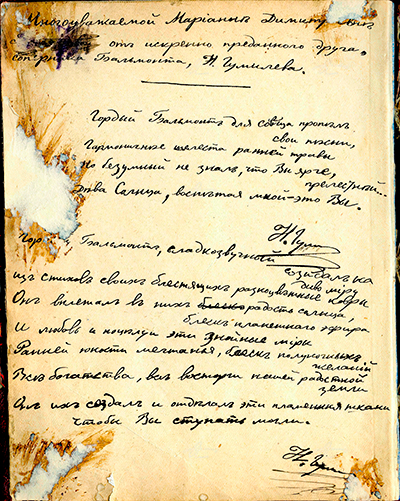 Многоуважаемой Маріаннѣ Димитріевнѣ
отъ искренно преданнаго друга,
соперника Бальмонта, Н. Гумилева.
Гордый Бальмонтъ для солнца пропѣлъ
свои пѣсни,
Гармоничнѣе шелеста ранней травы
Но безумный не зналъ, что Вы ярче,
прелестнѣй...
Дѣва Солнца, воспѣтая мной – это Вы.
Н. Гум
Бальмонтъ, сладкозвучный
созидалъ на
диво міру
изъ стиховъ своихъ блестящихъ разноцвѣтные ковры
Онъ вплеталъ въ нихъ радость солнца,
блескъ пламеннаго эфира
И любовь и поцѣлуи эти знойные міры
Ранней юности мечтанья, блескъ полуночныхъ
желаній
Всѣ богатства, всѣ восторги нашей радостной
земли
Онъ ихъ создалъ и отдалъ эти пламенныя ткани
чтобы Вы ступать могли.
Н. Гум